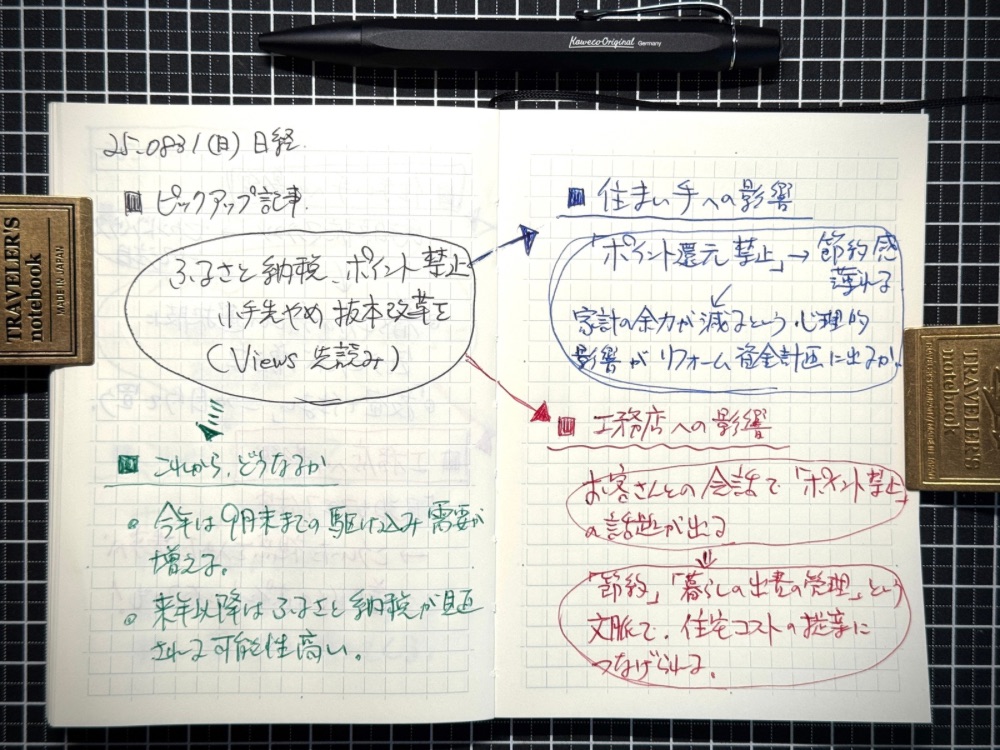 Kaweco Original Germany
TRAVELER'S
notebook
MADE IN JAPAN
25.0831(日) 日経.
ピックアップ記事.
ふるさと納税、ポイント禁止
小手先やめ 抜本改革を
(Views 先読み)
これから、どうなるか
今年は9月末までの駆け込み需要が
増える。
来年以降はふるさと納税が見直
される可能性高い。
住まい手への影響
「ポイント還元禁止」→ 節約感
薄れる
家計の余力が減るという心理的
影響がリフォーム資金計画に出るか。
工務店への影響
お客さんとの会話で「ポイント禁止」
の話題が出る
「節約」「暮らしの出費の管理」という
文脈で、住宅コストの提案に
つなげられる。
TRAVELER'S
notebook